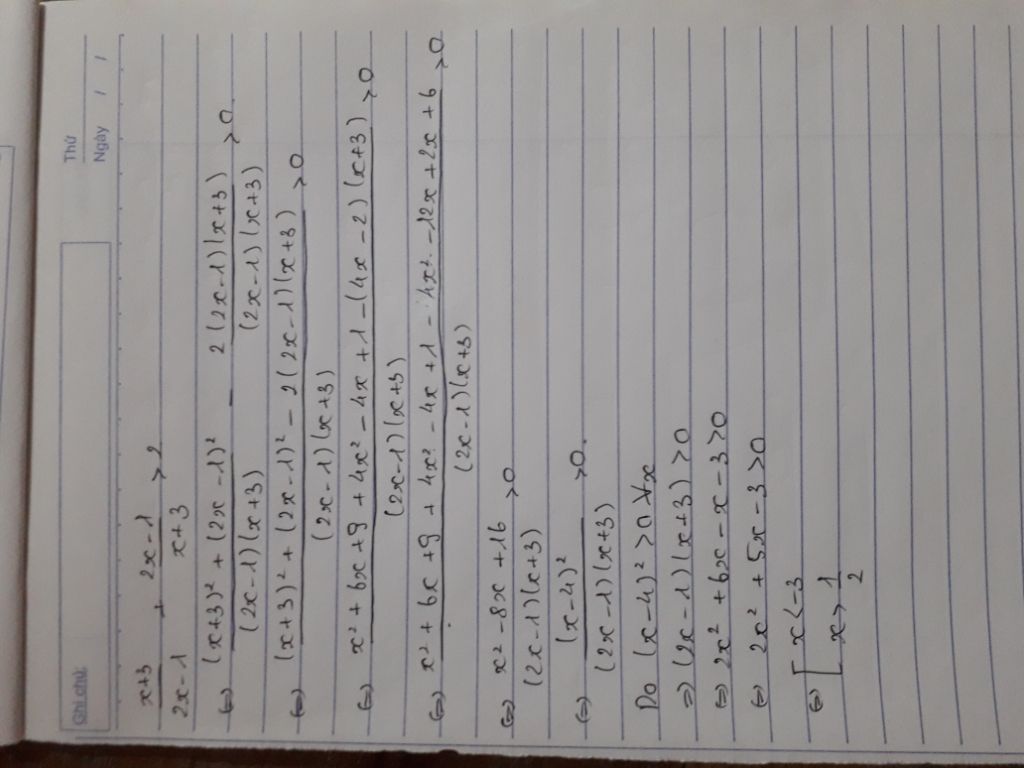 Thứ
Ngày / /
Ghi chú:
x+3/2x-1 + 2x-1/x+3 > 2
(=) (x+3)² + (2x-1)²/(2x-1)(x+3) - 2(2x-1)(x+3)/(2x-1)(x+3) > 0
(=) (x+3)² + (2x-1)² - 2(2x-1)(x+3)/(2x-1)(x+3) > 0
(=) x² + 6x + 9 + 4x² - 4x + 1 - (4x-2)(x+3)/(2x-1)(x+3) > 0
(=) x² + 6x + 9 + 4x² - 4x + 1 - 4x² - 12x + 2x + 6/(2x-1)(x+3) > 0
(=) x² - 8x + 16/(2x-1)(x+3) > 0
(=) (x-4)²/(2x-1)(x+3) > 0.
Do (x-4)² > 0 ∀x
=) (2x-1)(x+3) > 0
(=) 2x² + 6x - x - 3 > 0
(=) 2x² + 5x - 3 > 0
(=) [ x < -3
[ x > 1/2